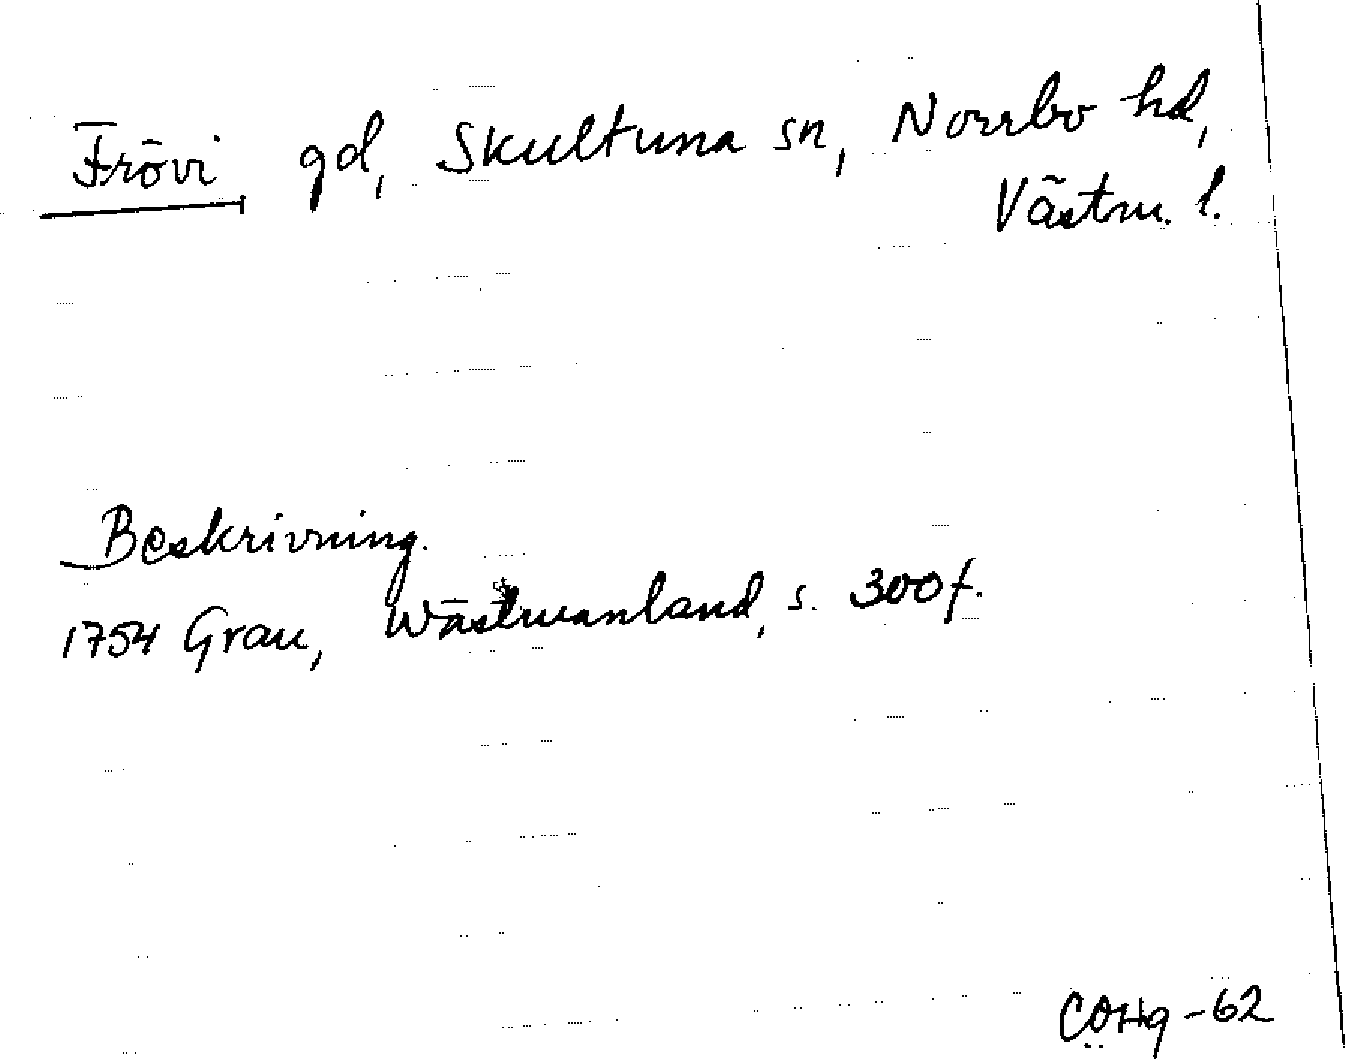 Frövi gd, Skultuna sn, Norrbo hd,
Västm. l.
Beskrivning.
1754 Grau, Wästmanland, s. 300 f.
CÖHg -62